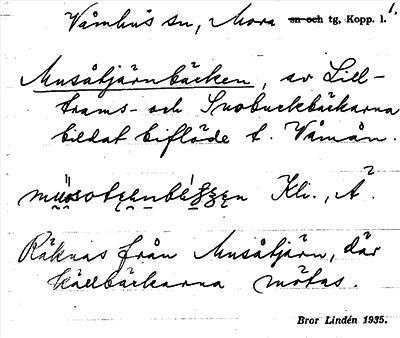 Våmhus sn, Mora sn och tg, Kopp. l.
Musåtjärnbäcken, av Lill-
trams- och Snobuckbäckarna
bildat biflöde t. Våmån.
Kli., Å.
Räknas från Musåtjärn, där
källbäckarna mötas.
Bror Lindén 1935.